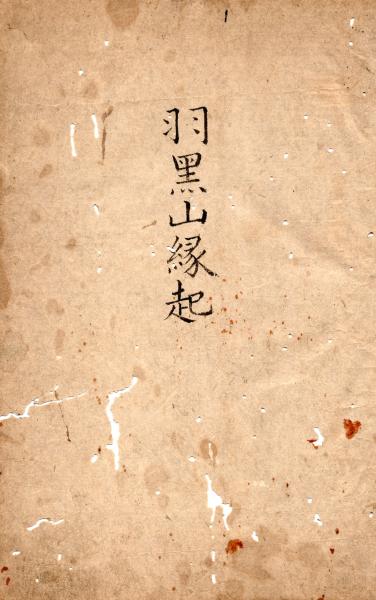 羽黑山縁起